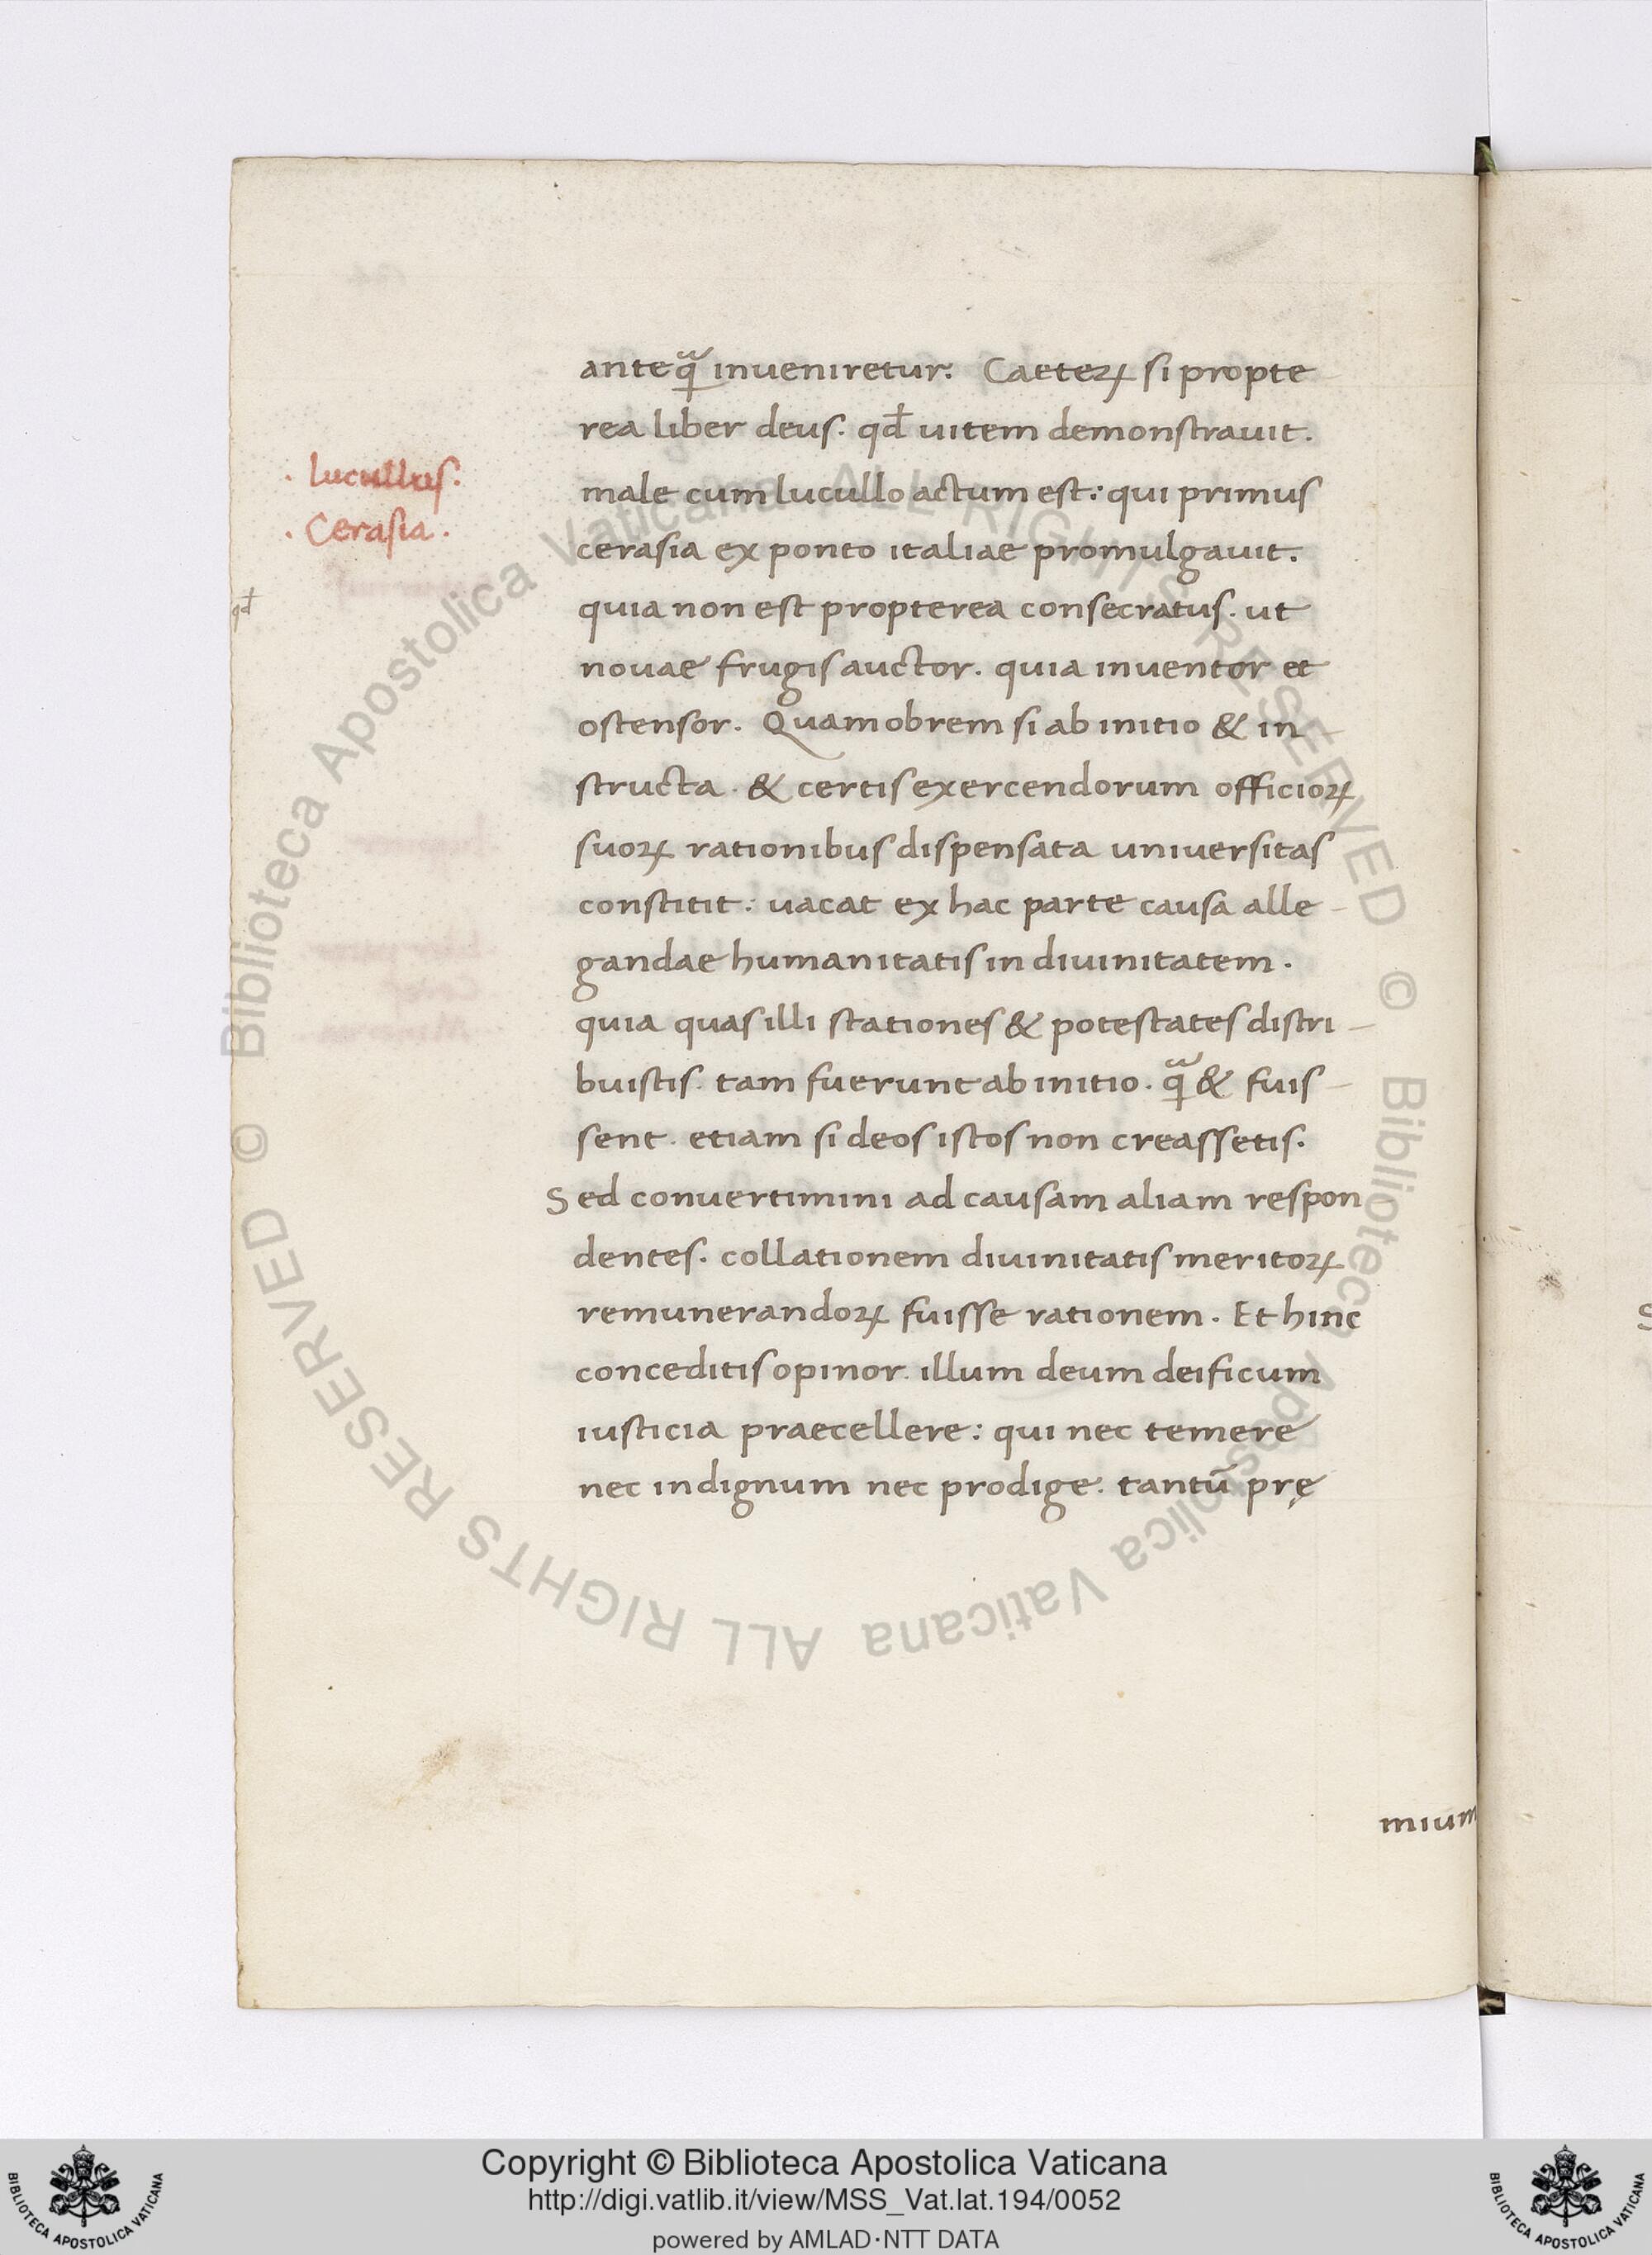 anteqᷓ inueniretur: Caeteꝝ si propte
rea liber deus. qđ uitem demonstrauit.
male cum lucullo actum est: qui primus
cerasia ex ponto italiae promulgauit.
quia non est propterea consecratus. ut
nouae frugis auctor. quia inuentor et
ostensor. Quamobrem si ab initio & in
structa. & certis exercendorum officioꝝ
suoꝝ rationibus dispensata uniuersitas
constitit: uacat ex hac parte causa alle-
gandae humanitatis in diuinitatem.
quia quas illi stationes & potestates distri-
buistis. tam fuerunt ab initio. qᷓ & fuis-
sent. etiam si deos istos non creassetis.
Sed conuertimini ad causam aliam respon
dentes. collationem diuinitatis meritoꝝ
remunerandoꝝ fuisse rationem. Et hinc
conceditis opinor. illum deum deificum
iusticia praecellere: qui nec temere
nec indignum nec prodige. tantū prę
mium
. lucullus.
. Cerasia.
qđ
Copyright © Biblioteca Apostolica Vaticana
http://digi.vatlib.it/view/MSS_Vat.lat.194/0052
powered by AMLAD·NTT DATA
BIBLIOTECA APOSTOLICA VATICANA
BIBLIOTECA APOSTOLICA VATICANA
© Biblioteca Apostolica Vaticana ALL RIGHTS RESERVED
© Biblioteca Apostolica Vaticana ALL RIGHTS RESERVED